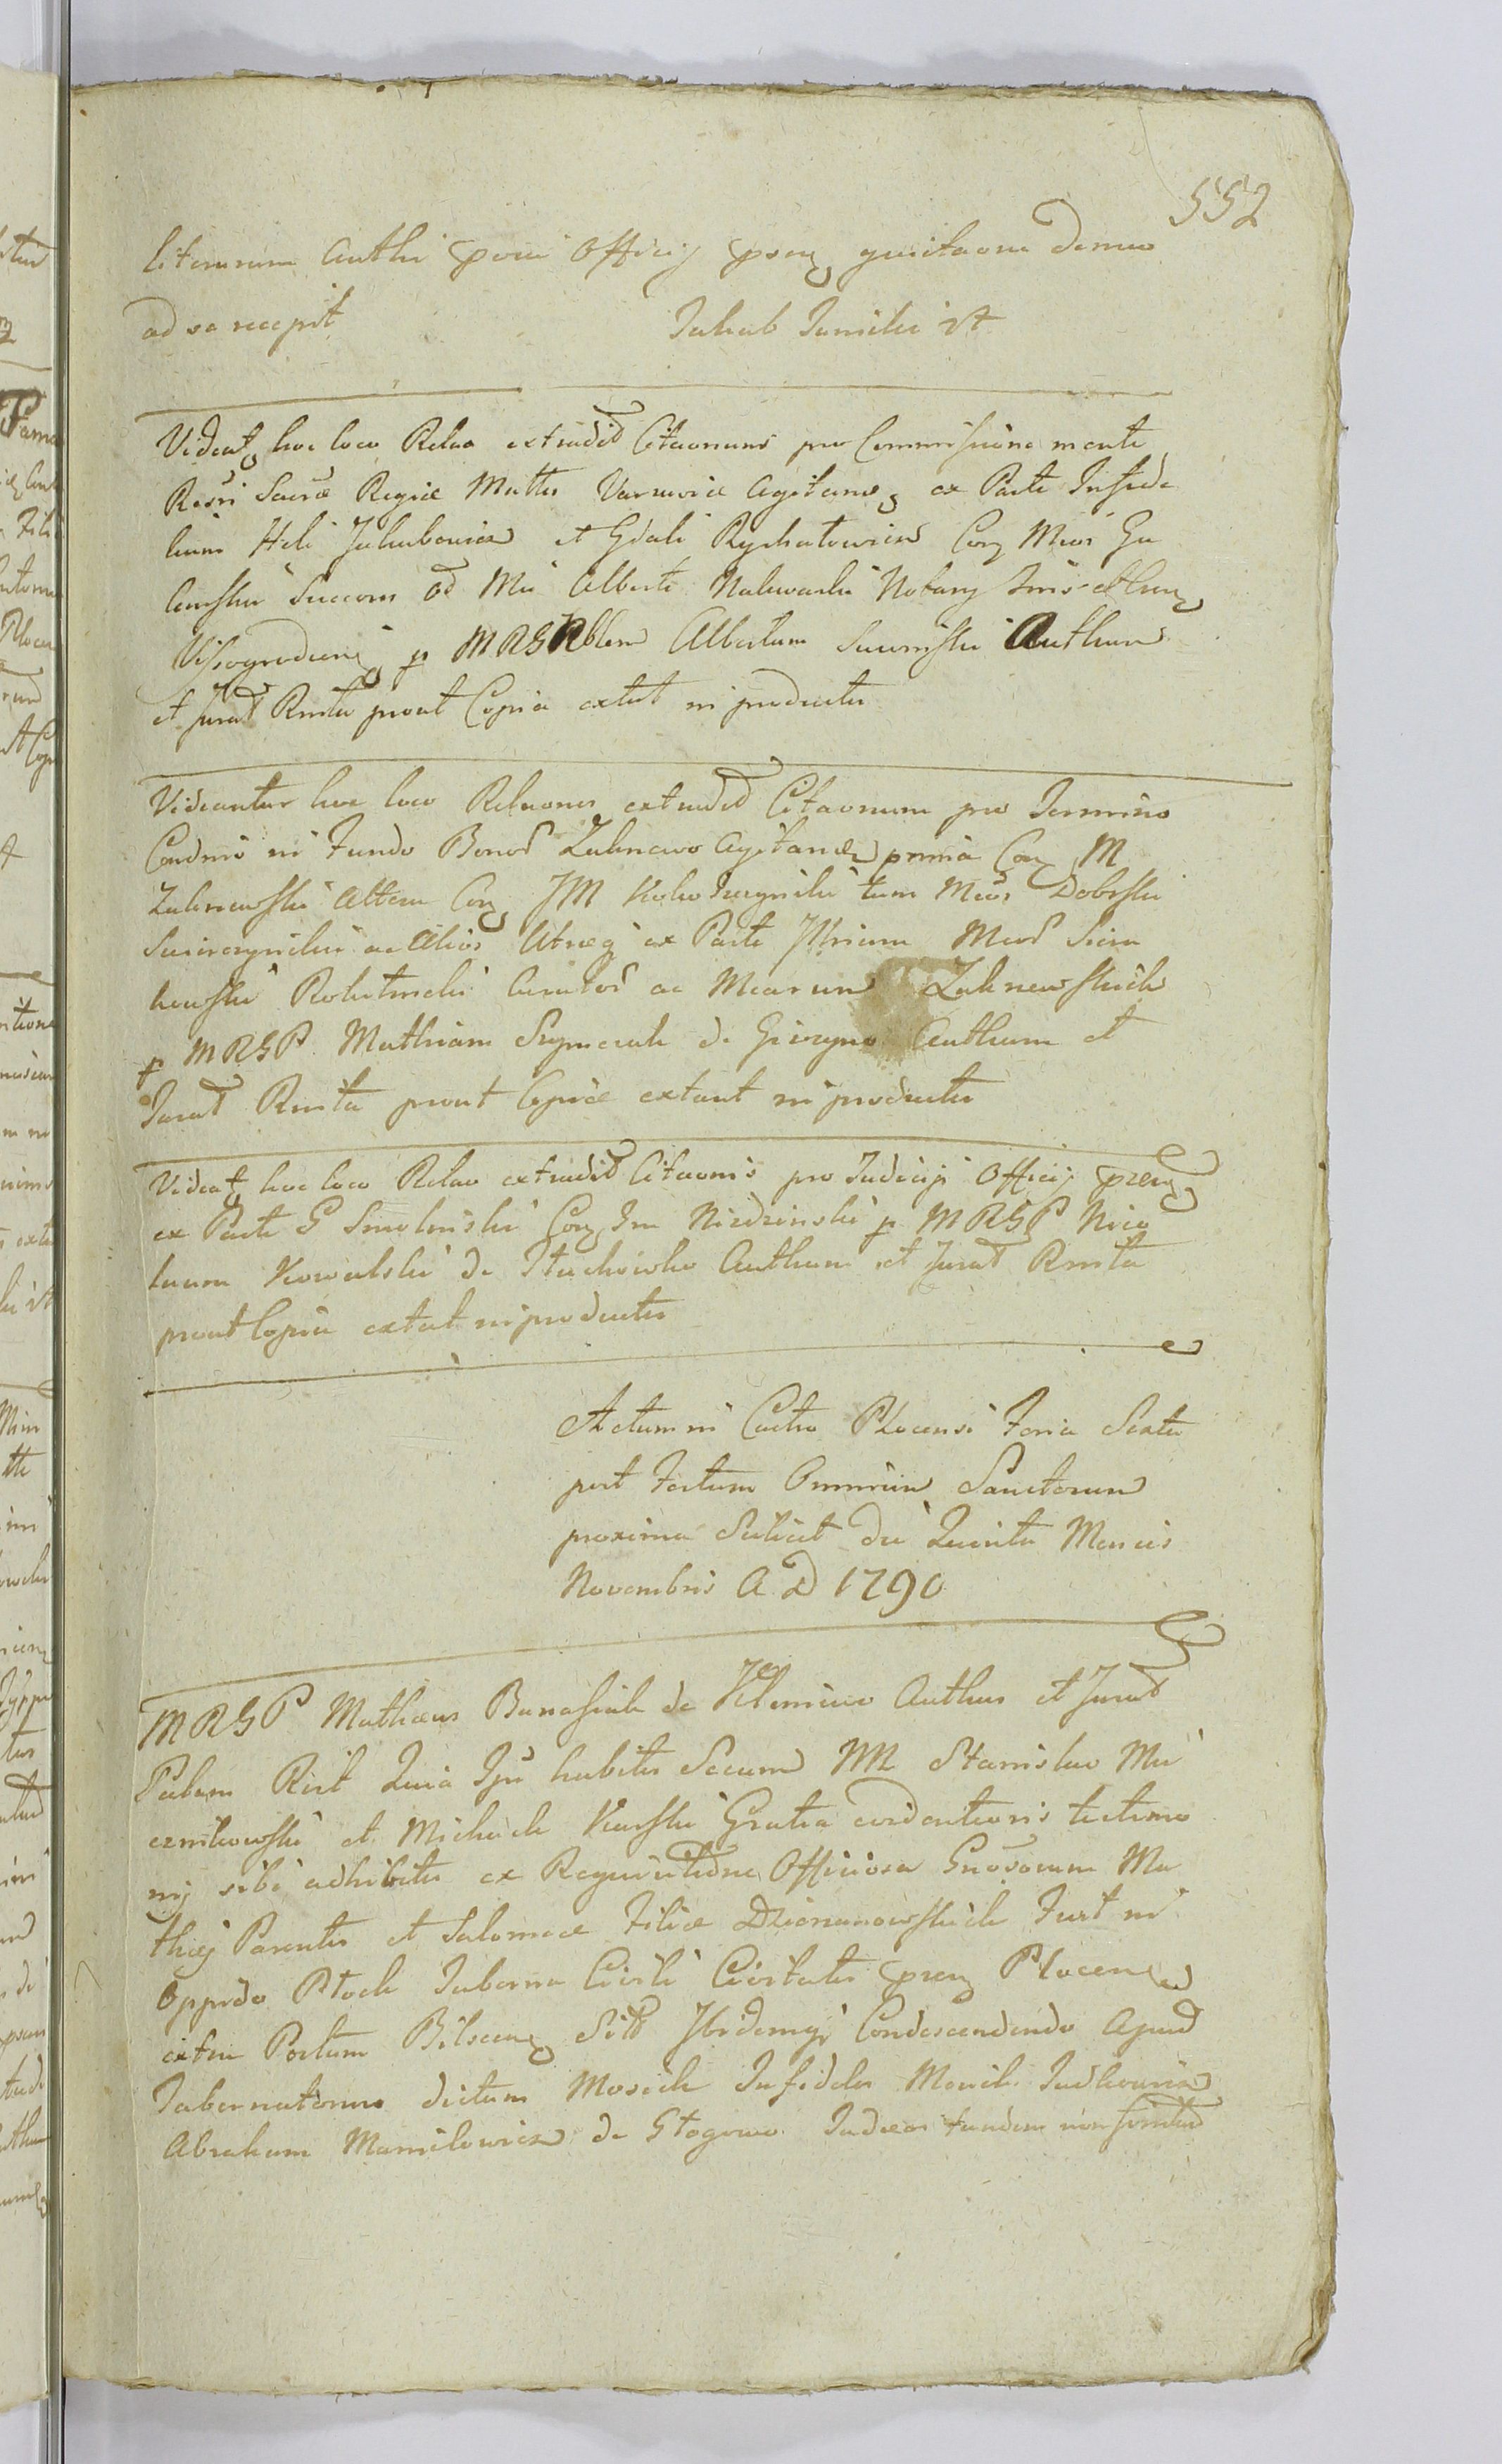 552
literarum Authi pnti Officij psen quietaone demeo
ad se recepit Jakub Junicki st
Videat hoc loco Relao extradit Citaonum pro Commissione mente
Resri Sacræ Regiæ Mattis Varsaviæ Agitanda ex Parte Infide
lium Heli Jakubowicz et Gdali Rychatowicz Con Mcos Ga
Succores od Mci Alberti Nakwaski Notary Tris
Vissogradien p MRGP Alblem Albertum Authum
et Jurat Rmta prout Copia extat in productis
Videantur hoc loco Relaones extradit Citaonum pro Termino
Condnio in Fundo Bonor Zalenewo Agitandæ prima Con M
Zalenewski Altera Con JM tum Mcos Dobrski
ac Alios Utræq ex Parte Jllrium Mcor Siera
kowski Rokitnicki Curator ac Mcarum Zaknewskich
p MRGP Mathiam Szymczak de Giżyno Authum et
Jurat Rmta prout Copiæ extant in productis
Videat hoc loco Relao extradit Citaonis pro Judicijs Officij psen
ex Parte G Smoleński Con Jm Niedzinski p MRGP Nico
laum Kowalski de Stachowko Authum et Jurat Rmta
prout Copia extat in productis
Actum in Castro Plocensi Feria Sexta
post Festum Omnium Sanctorum
proxima Scilicet die Quinta Mensis
Novembris A D 1790
MRGP Mathæus Banasiak de Kleniewo Authus et Jurat
Palam Rcit Quia Ipse habitis Secum NN Stanislao Mie
cznikowski et Michaele Karski Gratia evidentioris testimo
nij sibi adhibitis ex Requisitione Officiosa Gnosorum Ma
thiæ Parentis et Salomeæ Filiæ Dzierzanowskich Fuit in
Oppido Płock Taberna Civili Civitatis psen Plocen
extra Portam Bilscen Sita Ibidemq Condescendendo Apud
Tabernatorem dictum Mosiek Infideles Mosiek Judkowicz
Abraham Manielowicz de Głogowo Judæos tandem